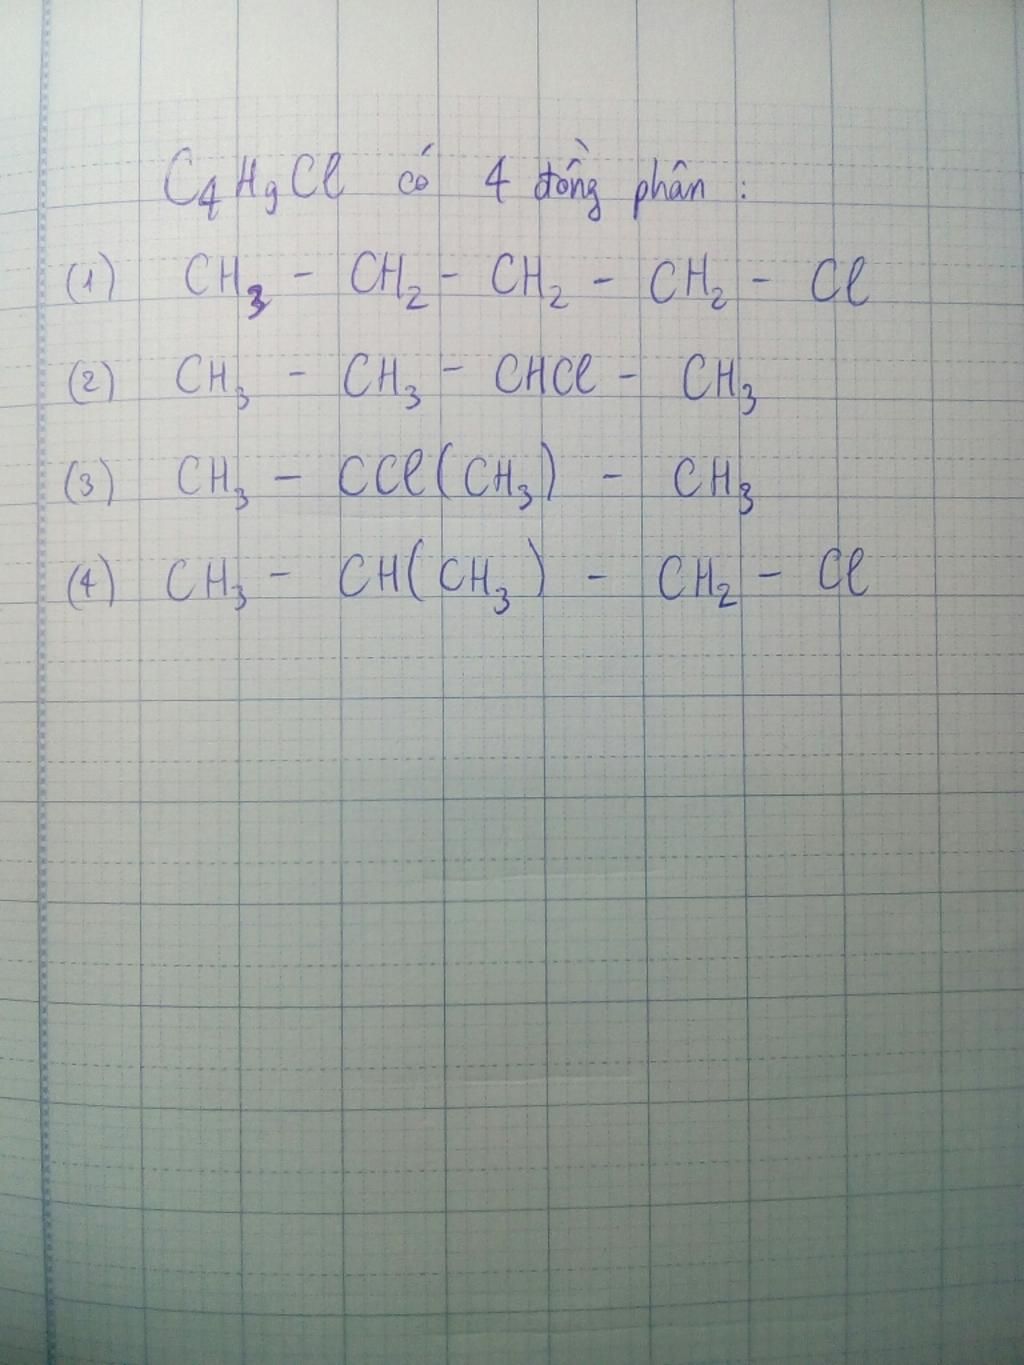 C₄H₉Cl có 4 đồng phân :
(1) CH₃ - CH₂ - CH₂ - CH₂ - Cl
(2) CH₃ - CH₃ - CHCl - CH₃
(3) CH₃ - CCl(CH₃) - CH₃
(4) CH₃ - CH(CH₃) - CH₂ - Cl